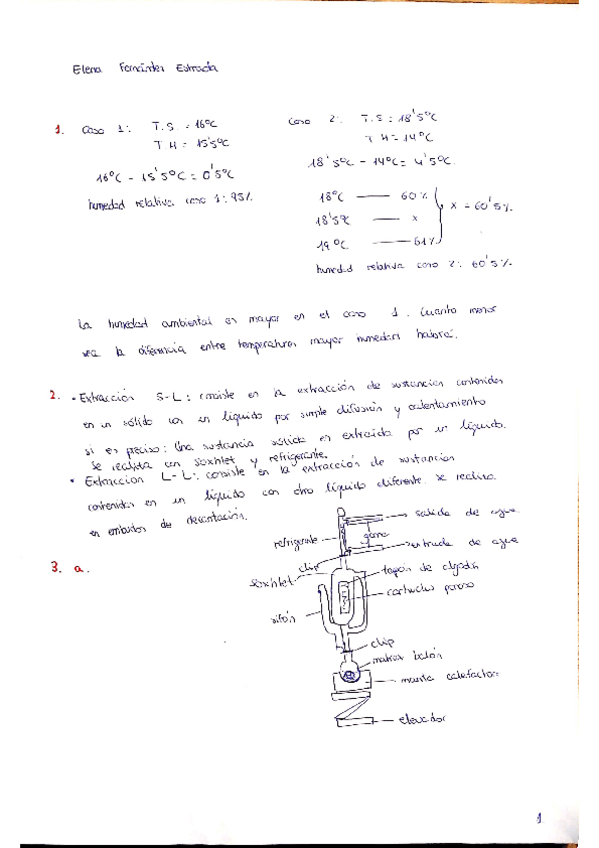 Elena Fernández Estrada
1. Caso 1: T.S. = 16ºC
T H = 15'5ºC
16ºC - 15'5ºC = 0'5ºC
humedad relativa caso 1: 95%
Caso 2: T.S = 18'5ºC
T H = 14ºC
18'5ºC - 14ºC = 4'5ºC
18ºC — 60%
18'5ºC — x
x = 60'5%
19ºC — 61%
humedad relativa caso 2: 60'5%
La humedad ambiental es mayor en el caso 1. Cuanto menor
sea la diferencia entre temperaturas mayor humedad habrá.
2. • Extracción S-L: consiste en la extracción de sustancias contenidas
en un sólido con un líquido por simple difusión y calentamiento
si es preciso: Una sustancia sólida es extraída por un líquido.
Se realiza con soxhlet y refrigerante.
• Extracción L-L: consiste en la extracción de sustancias
contenidas en un líquido con otro líquido diferente. Se realiza
en embudos de decantación.
3. a.
salida de agua
refrigerante
goma
entrada de agua
clip
soxhlet
tapón de algodón
cartucho poroso
sifón
clip
matraz balón
manta calefactora
elevador
1